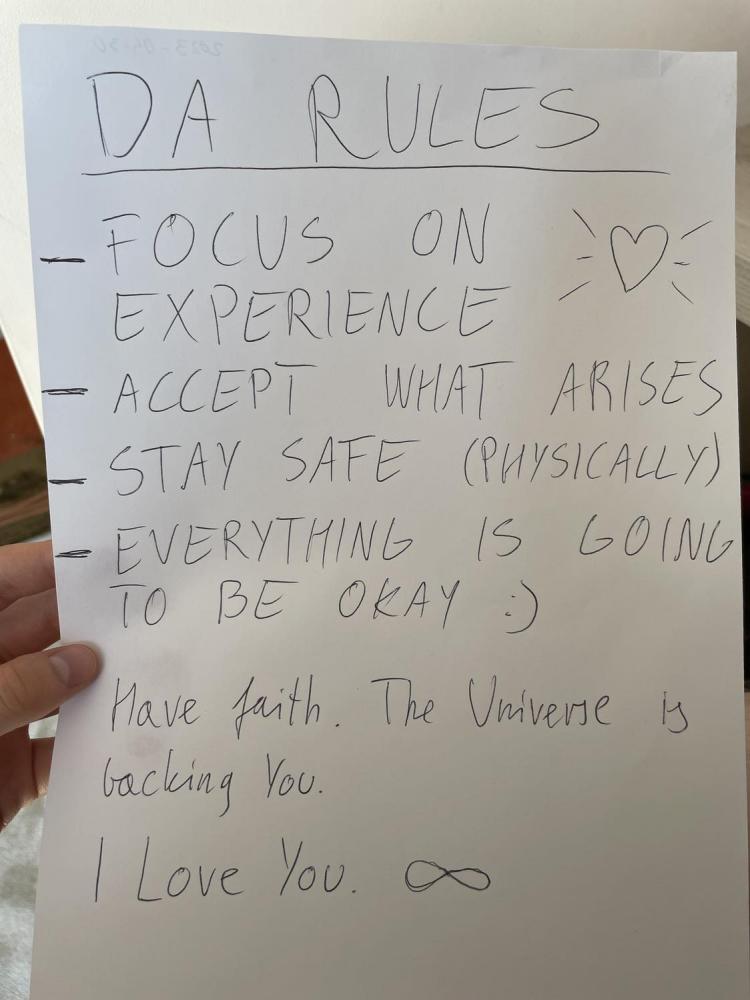 2023-04-30
DA RULES
- FOCUS ON
EXPERIENCE
- ACCEPT WHAT ARISES
- STAY SAFE (PHYSICALLY)
- EVERYTHING IS GOING
TO BE OKAY :)
Have faith. The Universe is
backing You.
I Love You. ∞